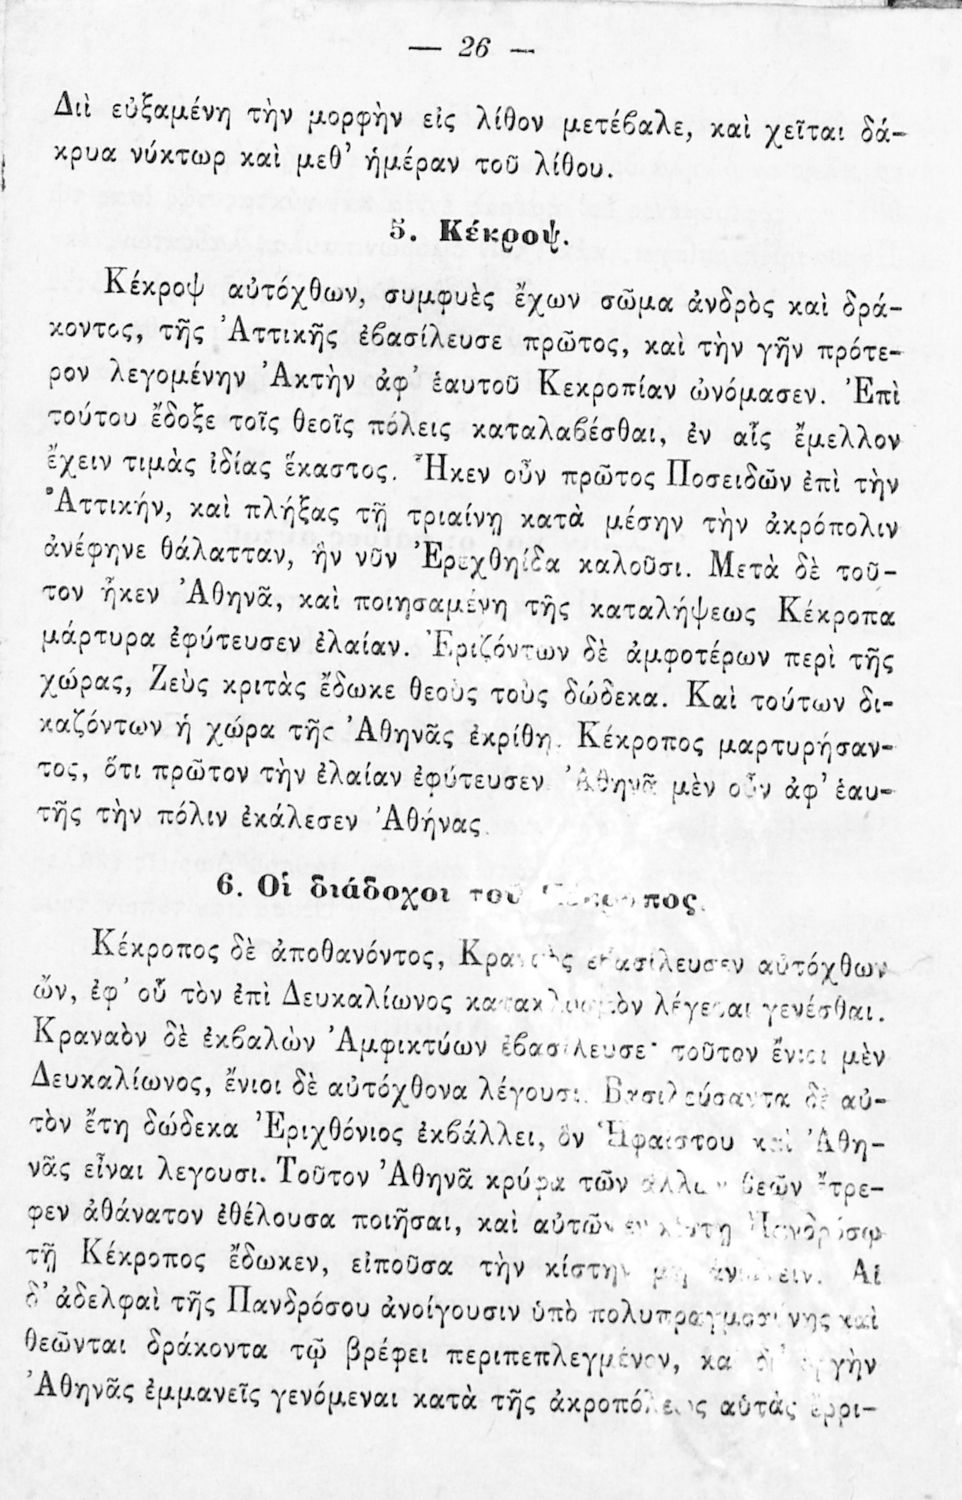 — 26 —
Διῒ εὐξαμένη τὴν μορφὴν εἰς λίθον μετέβαλε, καὶ χεῖται δά-
κρυα νύκτωρ καὶ μεθ’ ἡμέραν τοῦ λίθου.
5. Κέκροψ.
Κέκροψ αὐτόχθων, συμφυὲς ἔχων σῶμα ἀνδρὸς καὶ δρά-
κοντος, τῆς Ἀττικῆς ἐβασίλευσε πρῶτος, καὶ τὴν γῆν πρότε-
ρον λεγομένην Ἀκτὴν ἀφ’ ἑαυτοῦ Κεκροπίαν ὠνόμασεν. Ἐπὶ
τούτου ἔδοξε τοῖς θεοῖς πόλεις καταλαβέσθαι, ἐν αἷς ἔμελλον
ἔχειν τιμὰς ἰδίας ἕκαστος. Ἧκεν οὖν πρῶτος Ποσειδῶν ἐπὶ τὴν
Ἀττικήν, καὶ πλήξας τῇ τριαίνῃ κατὰ μέσην τὴν ἀκρόπολιν
ἀνέφηνε θάλατταν, ἣν νῦν Ἐρεχθηίδα καλοῦσι. Μετὰ δὲ τοῦ-
τον ἧκεν Ἀθηνᾶ, καὶ ποιησαμένη τῆς καταλήψεως Κέκροπα
μάρτυρα ἐφύτευσεν ἐλαίαν. Ἐριζόντων δὲ ἀμφοτέρων περὶ τῆς
χώρας, Ζεὺς κριτὰς ἔδωκε θεοὺς τοὺς δώδεκα. Καὶ τούτων δι-
καζόντων ἡ χώρα τῆς Ἀθηνᾶς ἐκρίθη. Κέκροπος μαρτυρήσαν-
τος, ὅτι πρῶτον τὴν ἐλαίαν ἐφύτευσεν Ἀθηνᾶ μὲν οὖν ἀφ’ ἑαυ-
τῆς τὴν πόλιν ἐκάλεσεν Ἀθήνας.
6. Οἱ διάδοχοι τοῦ Κέκροπος.
Κέκροπος δὲ ἀποθανόντος, Κραναὸς ἐβασίλευσεν αὐτόχθων
ὤν, ἐφ’ οὗ τὸν ἐπὶ Δευκαλίωνος κατακλυσμὸν λέγεται γενέσθαι.
Κραναὸν δὲ ἐκβαλὼν Ἀμφικτύων ἐβασίλευσε· τοῦτον ἔνιοι μὲν
Δευκαλίωνος, ἔνιοι δὲ αὐτόχθονα λέγουσι. Βασιλεύσαντα δὲ αὐ-
τὸν ἔτη δώδεκα Ἐριχθόνιος ἐκβάλλει, ὃν Ἡφαίστου καὶ Ἀθη-
νᾶς εἶναι λεγουσι. Τοῦτον Ἀθηνᾶ κρύφα τῶν ἄλλων θεῶν ἔτρε-
φεν ἀθάνατον ἐθέλουσα ποιῆσαι, καὶ αὐτὸν ἐν κίστῃ Πανδρόσῳ
τῇ Κέκροπος ἔδωκεν, εἰποῦσα τὴν κίστην μὴ ἀνοίγειν. Αἱ
δ’ ἀδελφαὶ τῆς Πανδρόσου ἀνοίγουσιν ὑπὸ πολυπραγμοσύνης καὶ
θεῶνται δράκοντα τῷ βρέφει περιπεπλεγμένον, καὶ δι’ ὀργὴν
Ἀθηνᾶς ἐμμανεῖς γενόμεναι κατὰ τῆς ἀκροπόλεως αὑτὰς ἔρρι-